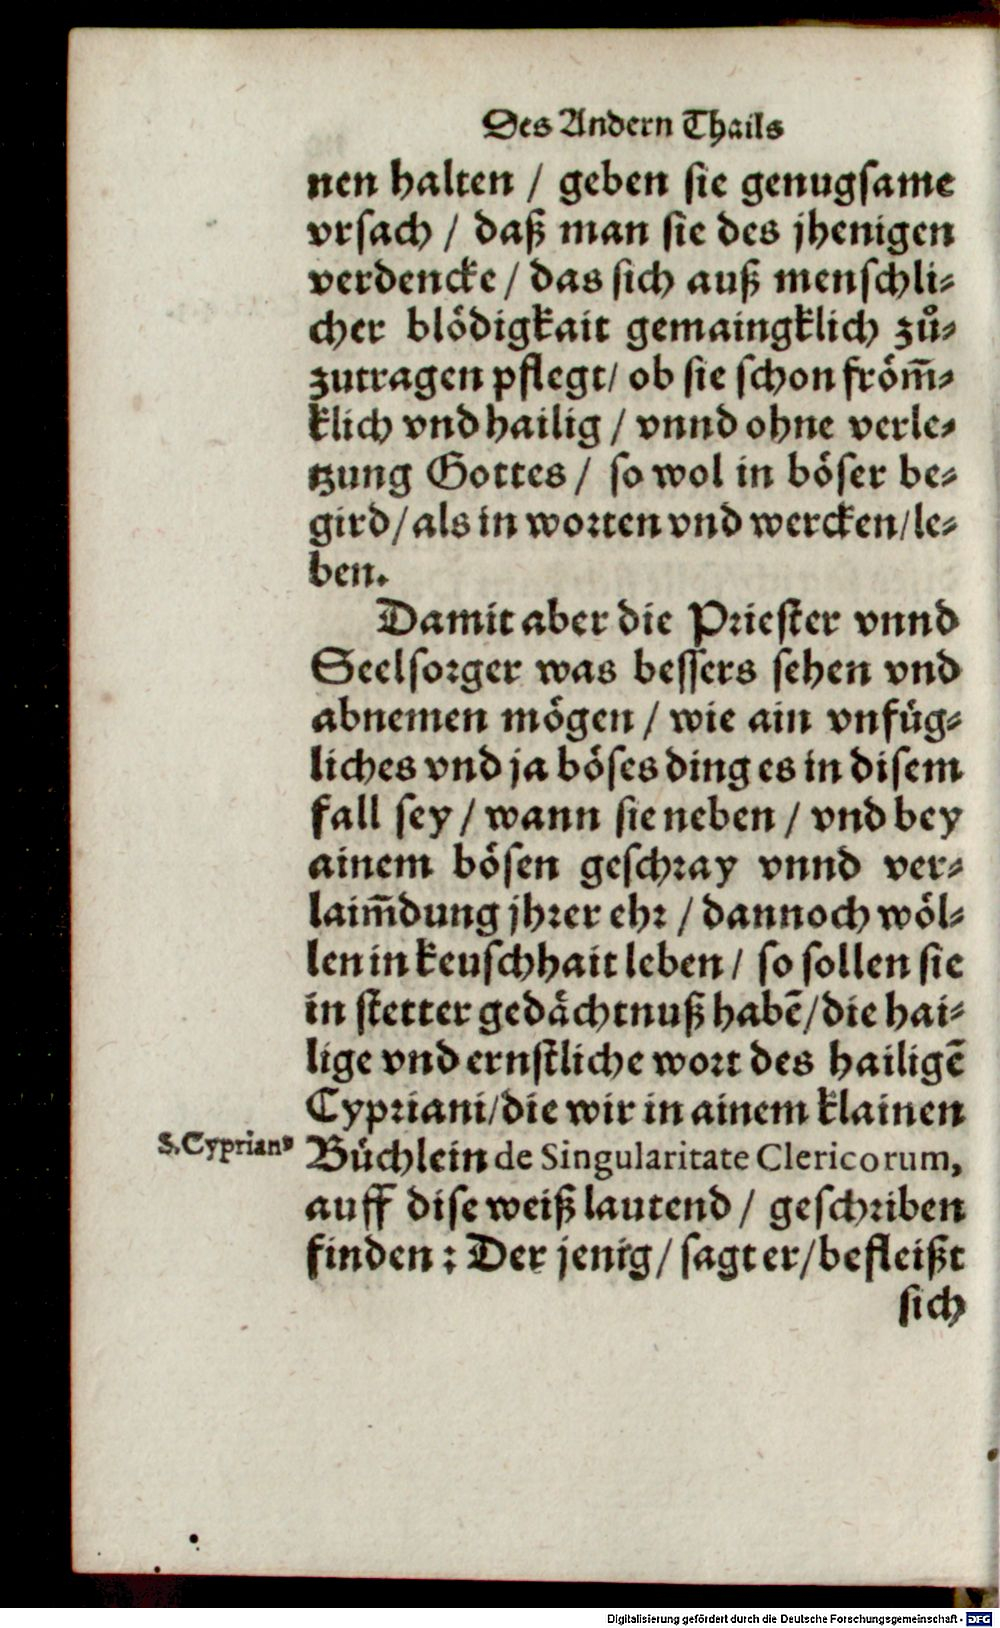 Des Andern Thails
nen halten / geben sie genugsame
vrsach / daß man sie des jhenigen
verdencke / das sich auß menschli⸗
cher blödigkait gemaingklich zů⸗
zutragen pflegt / ob sie schon fröm̃⸗
klich vnd hailig / vnnd ohne verle⸗
tzung Gottes / so wol in böser be⸗
gird / als in worten vnd wercken / le⸗
ben.
Damit aber die Priester vnnd
Seelsorger was bessers sehen vnd
abnemen mögen / wie ain vnfüg⸗
liches vnd ja böses ding es in disem
fall sey / wann sie neben / vnd bey
ainem bösen geschray vnnd ver⸗
laim̃dung jhrer ehr / dannoch wöl⸗
len in keuschhait leben / so sollen sie
in stetter gedächtnuß habẽ / die hai⸗
lige vnd ernstliche wort des hailigẽ
Cypriani / die wir in ainem klainen
S. Cyprianꝰ
Büchlein de Singularitate Clericorum,
auff dise weiß lautend / geschriben
finden : Der jenig / sagt er / befleißt
sich
Digitalisierung gefördert durch die Deutsche Forschungsgemeinschaft - DFG